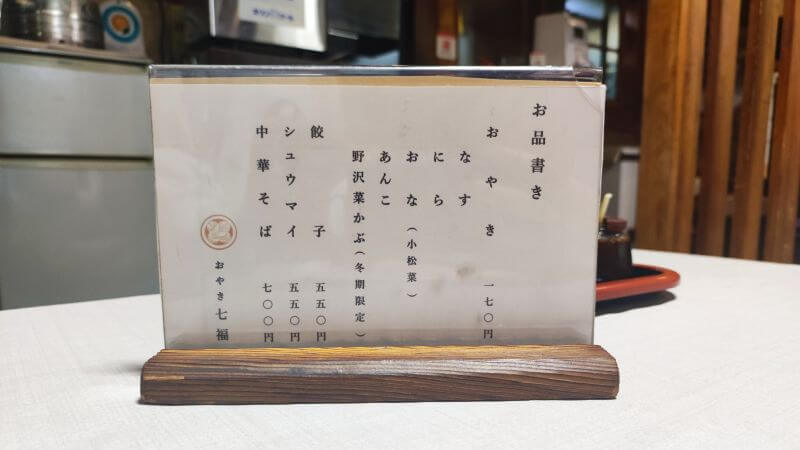 お品書き
おやき 一七〇円
なす
にら
おな(小松菜)
あんこ
野沢菜かぶ(冬期限定)
餃子 五五〇円
シュウマイ 五五〇円
中華そば 七〇〇円
おやき七福